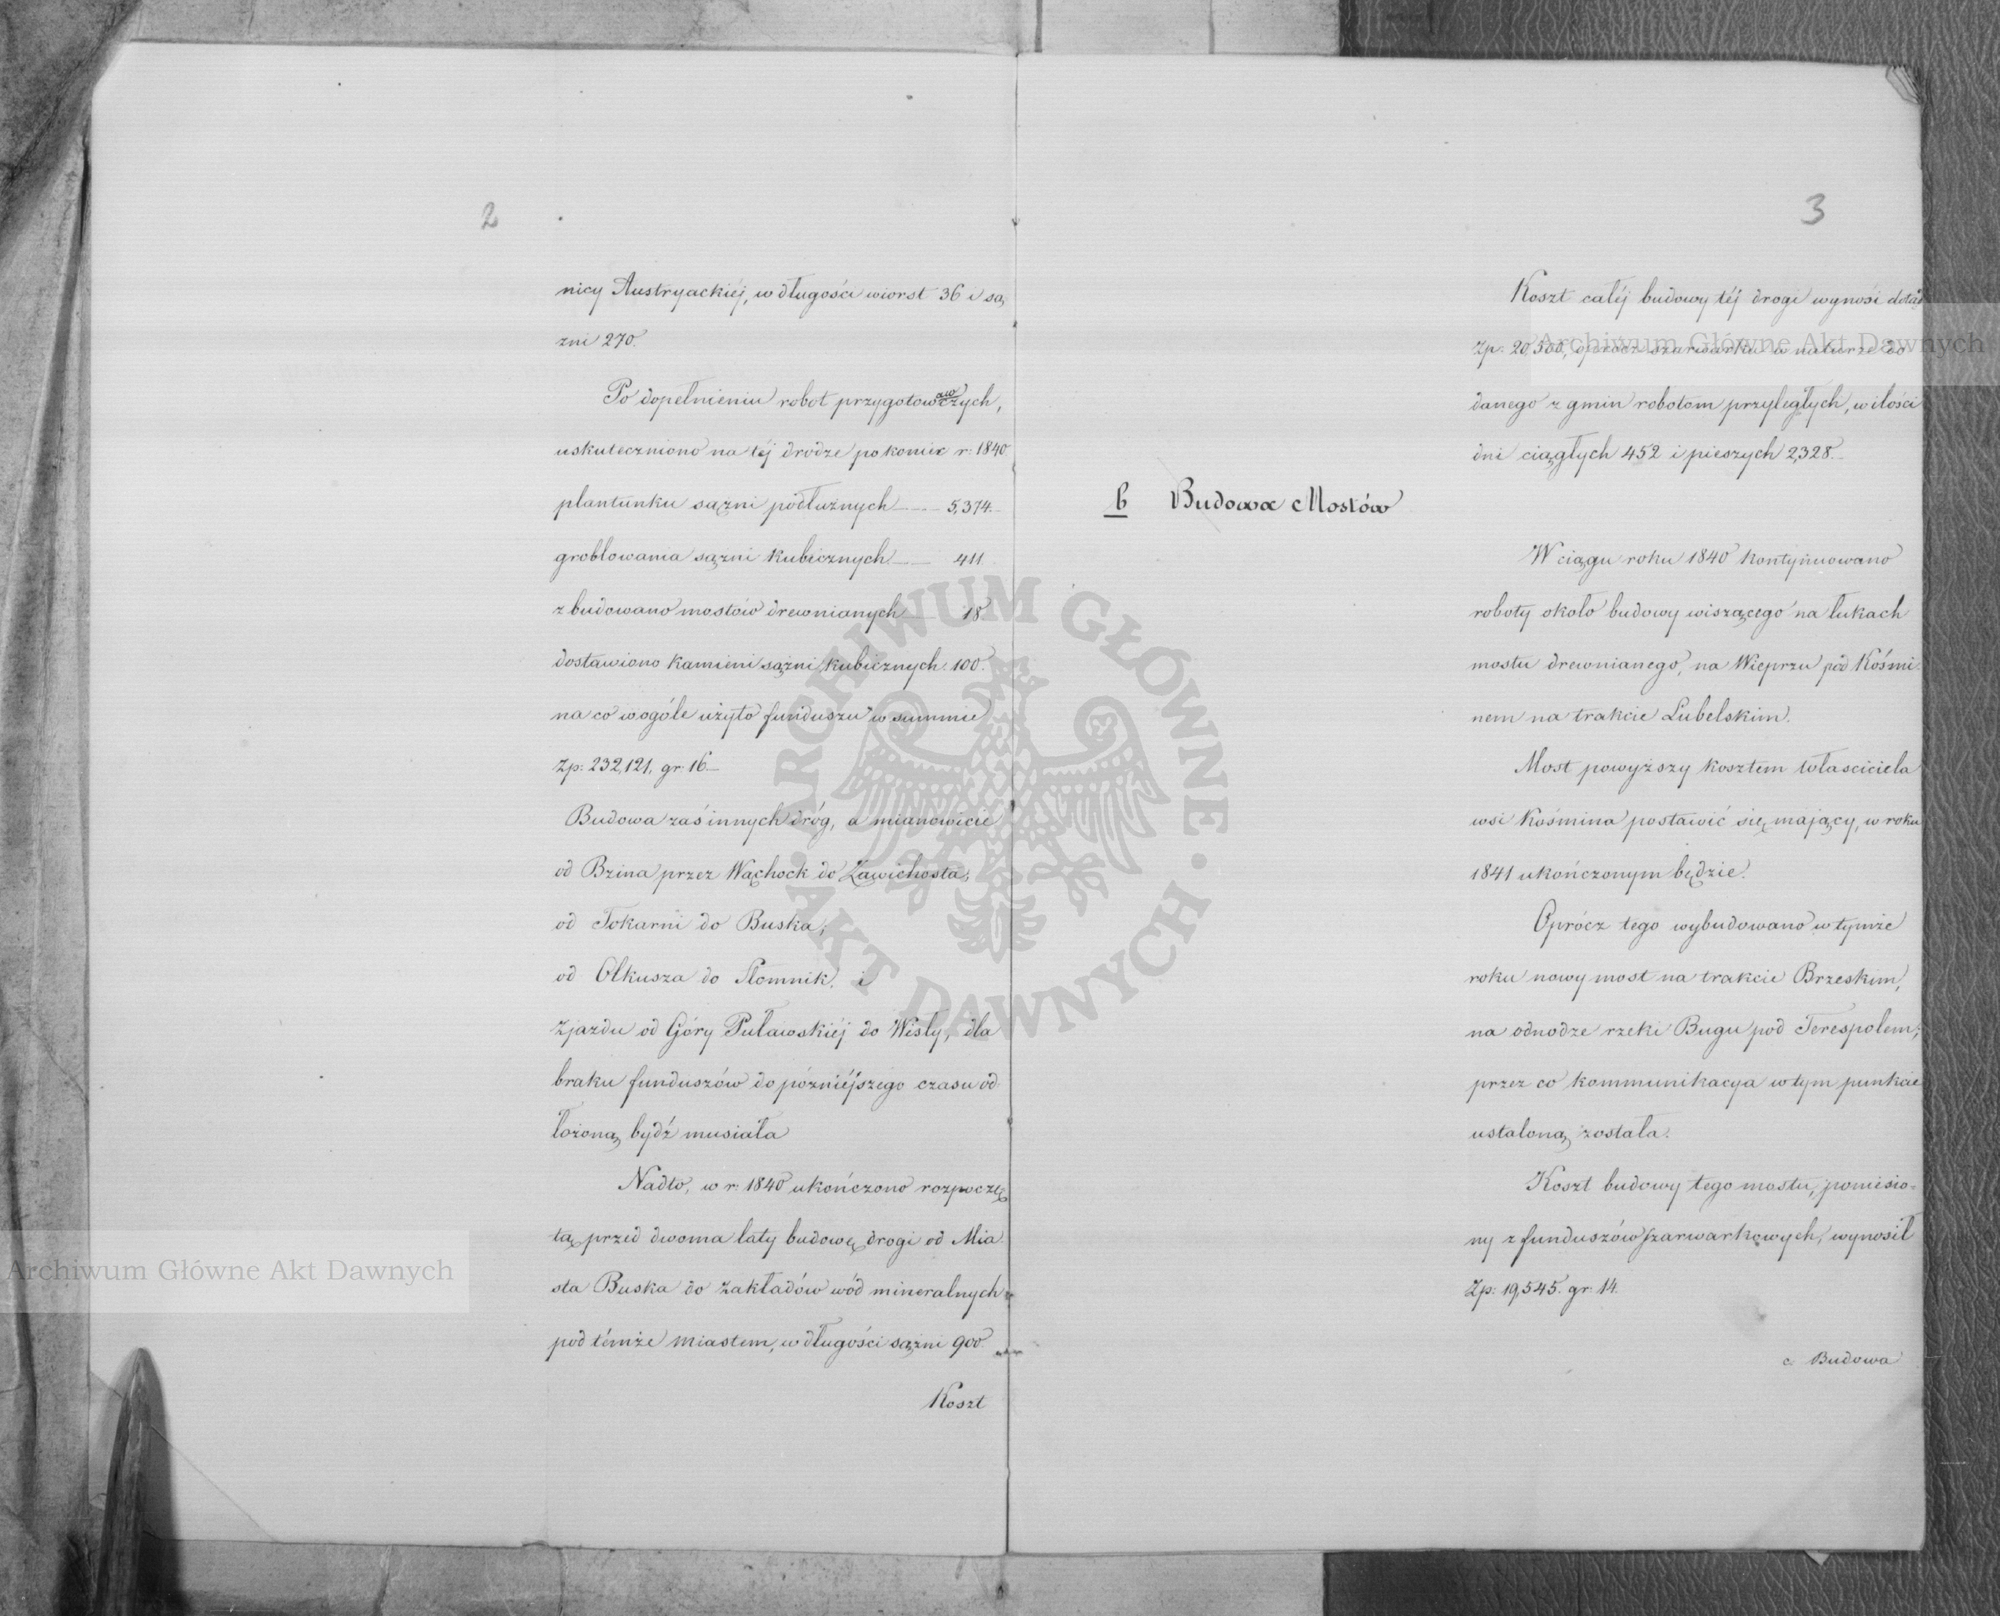 2
nicy Austryackiéj, w długości wiorst 36 i są
żni 270.
Po dopełnieniu robot przygotowawczych,
uskuteczniono na téj drodze po koniec r: 1840
plantunku sążni podłużnych 5,374.
groblowania sążni kubicznych 411.
zbudowano mostów drewnianych 18
dostawiono kamieni sążni kubicznych 100.
na co wogóle użyto funduszu w summie
Zp: 232,121, gr: 16.
Budowa zaś innych dróg, a mianowicie
od Bzina przez Wąchock do Zawichosta,
od Tokarni do Buska,
od Olkusza do Słomnik, i
Zjazdu od Góry Puławskiéj do Wisły, dla
braku funduszów do późniéjszego czasu od
łożoną bydź musiała
Nadto, w r: 1840 ukończono rozpoczę
tą przed dwoma laty budowę drogi od Mia
sta Buska do zakładów wód mineralnych
pod témże miastem, w długości sążni 900.
Koszt
3
Koszt całéj budowy téj drogi wynosi dotąd
Zp: 20,500, oprócz szarwarku w naturze do
danego z gmin robotom przyległych, w ilości
dni ciągłych 452 i pieszych 2,328.
b Budowa Mostów
W ciągu roku 1840 kontynuowano
roboty około budowy wiszącego na łukach
mostu drewnianego, na Wieprzu pod Kośmi
nem na trakcie Lubelskim.
Most powyższy kosztem właściciela
wsi Kośmina postawić się mający, w roku
1841 ukończonym będzie.
Oprócz tego wybudowano w tymże
roku nowy most na trakcie Brzeskim,
na odnodze rzeki Bugu pod Terespolem,
przez co kommunikacya w tym punkcie
ustaloną została.
Koszt budowy tego mostu, poniesio=
ny z funduszów szarwarkowych, wynosił
Zp: 19,545. gr: 14.
c. Budowa
Archiwum Główne Akt Dawnych
Archiwum Główne Akt Dawnych
ARCHIWUM GŁÓWNE AKT DAWNYCH